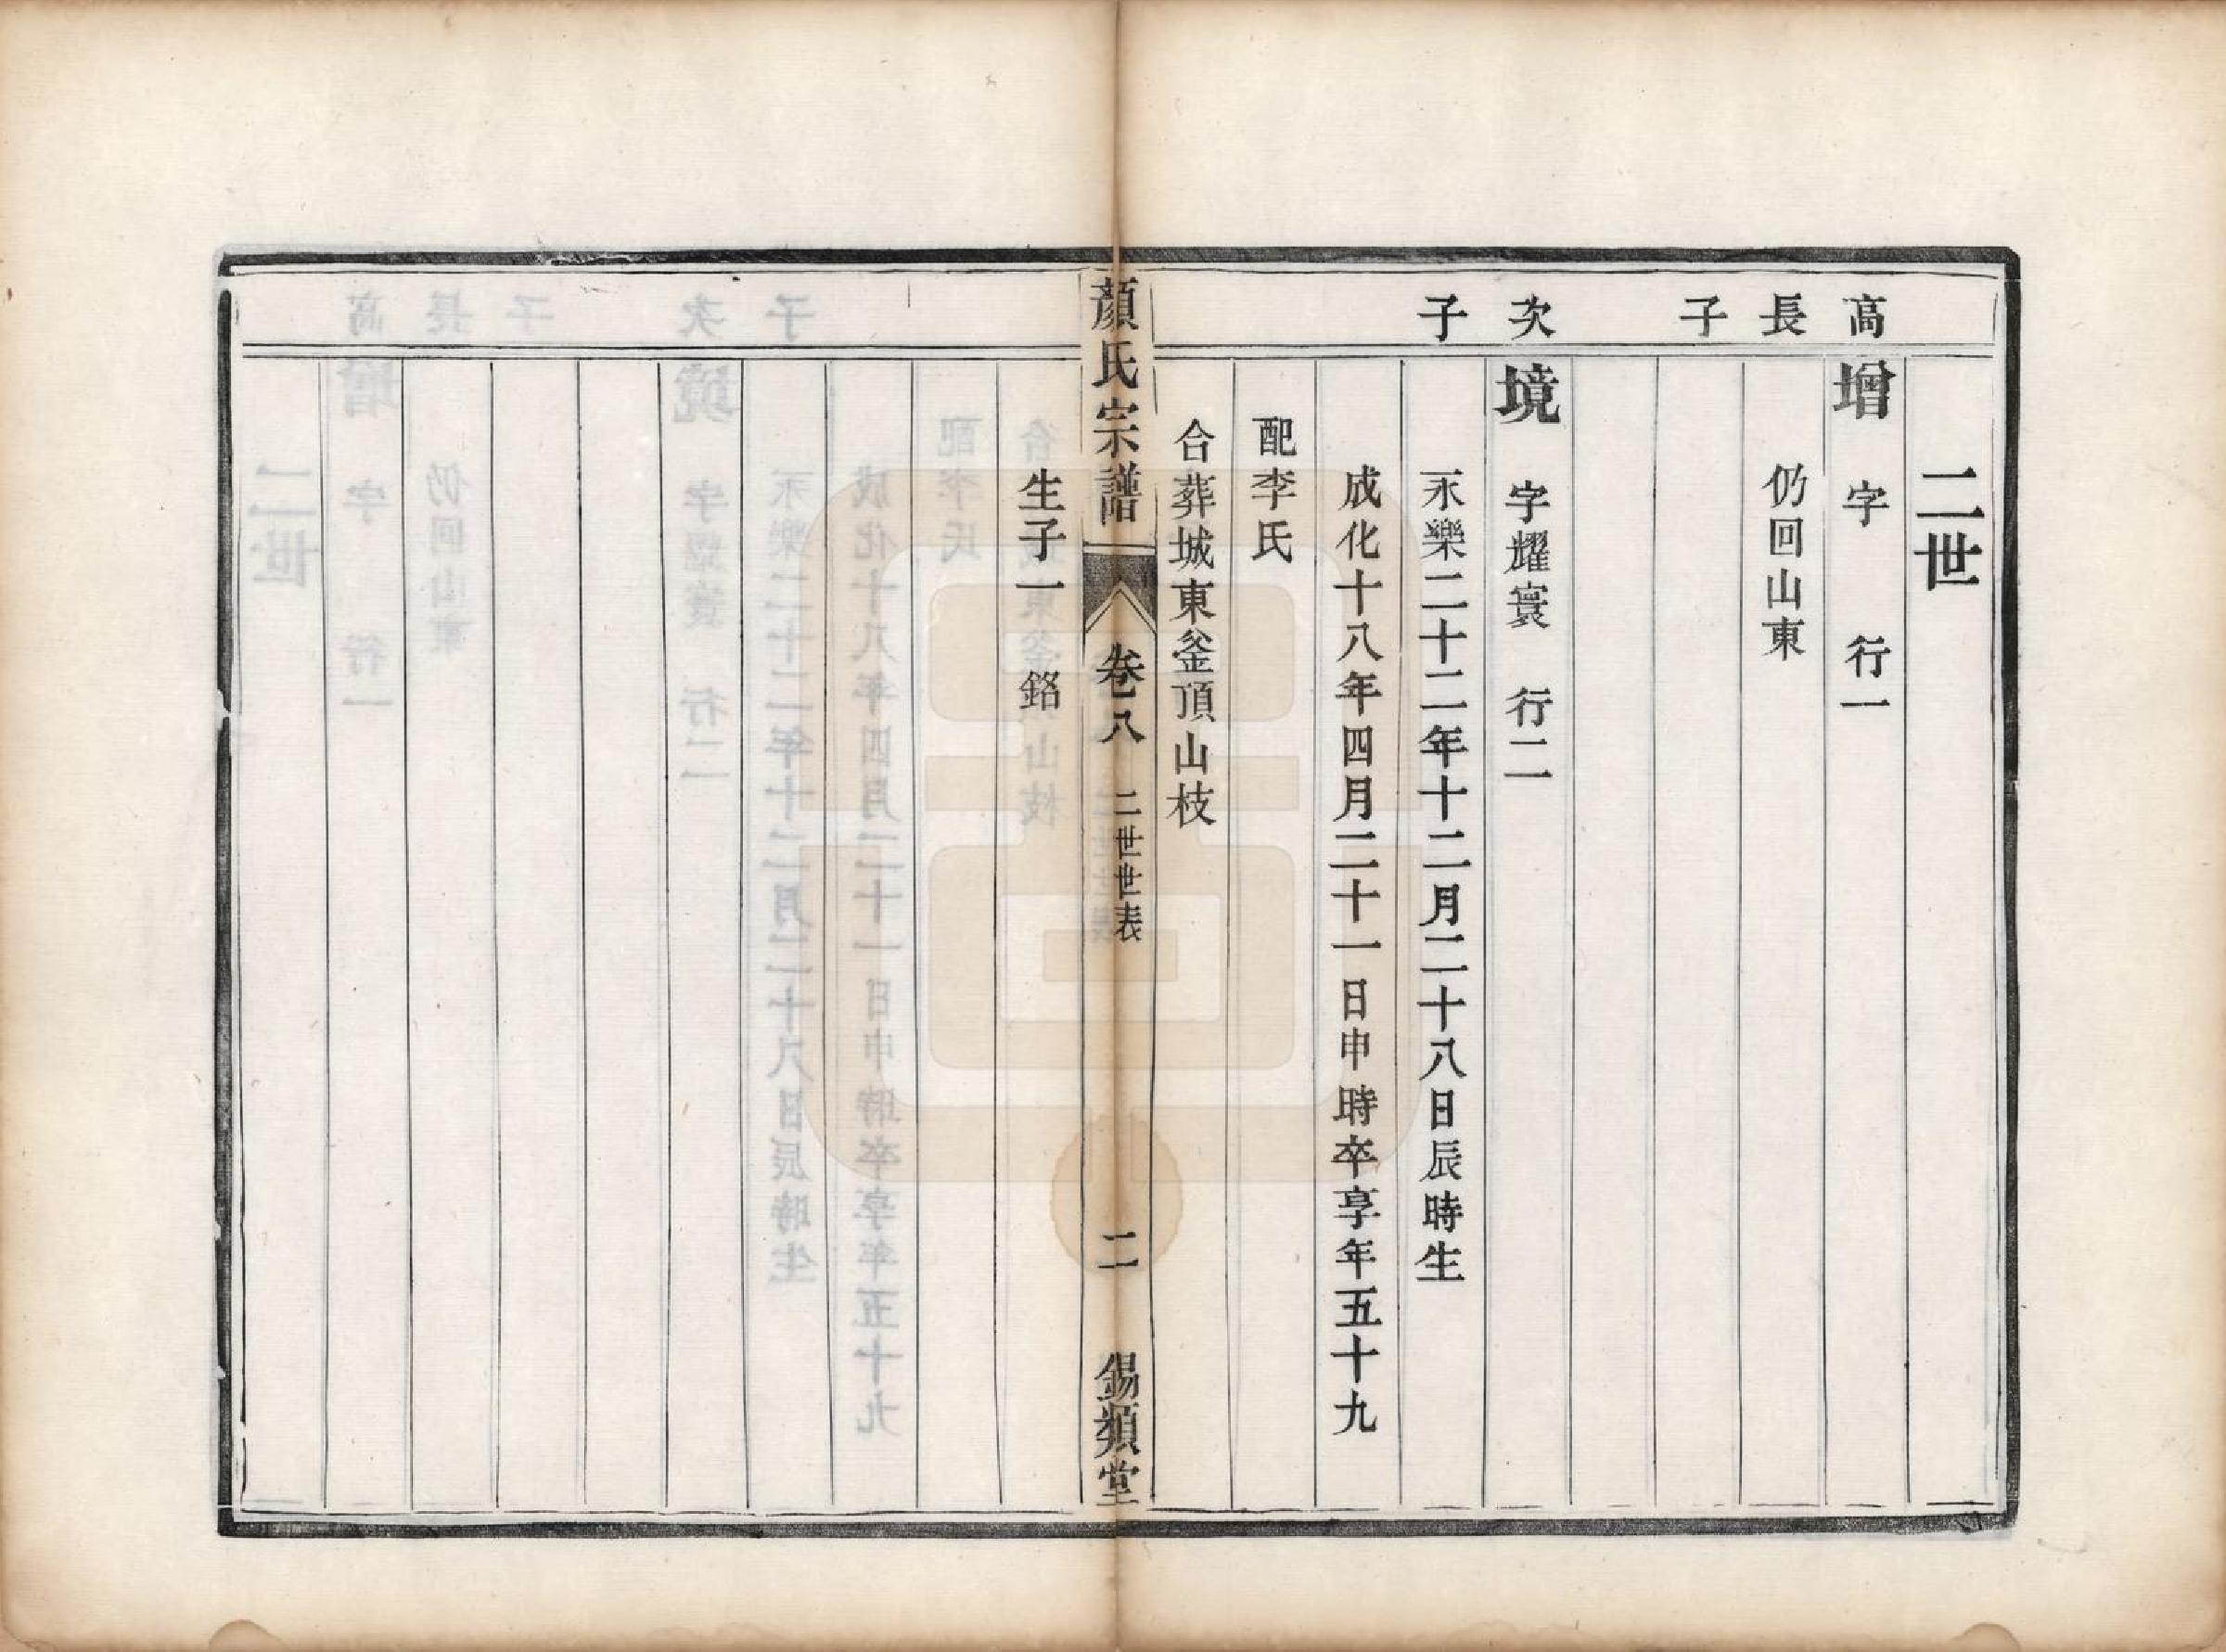 二世
高長子
增　字　　行一
仍回山東
次子
境　字耀寰　行二
永樂二十二年十二月二十八日辰時生
成化十八年四月二十一日申時卒享年五十九
配李氏
合葬城東釜頂山枝
顏氏宗譜　卷八　二世世表　二　錫類堂
生子一　銘